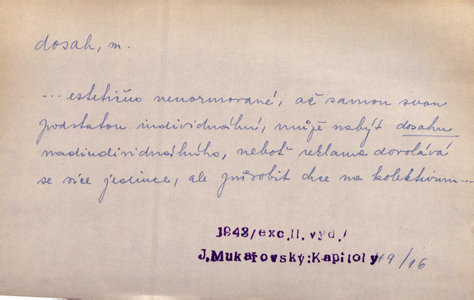 dosah, m.
... estetično nenormované, ač samou svou
podstatou individuální, může nabýt dosahu
nadindividuálního, neboť reklama dovolává
se sice jedince, ale působit chce na kolektivum...
1943/exc.II.vyd./
J.Mukařovský:Kapitoly 19/16